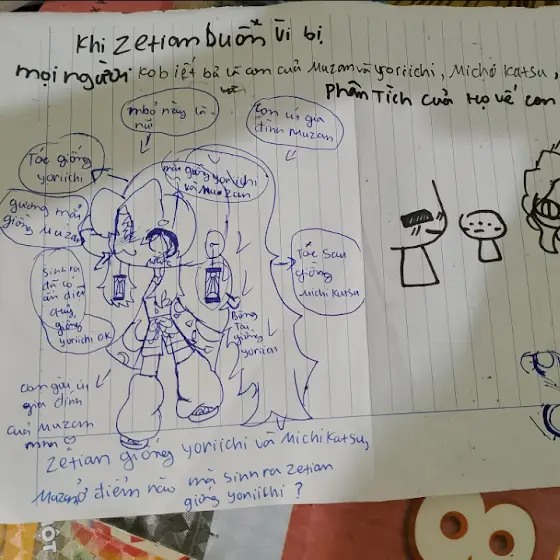 Khi Zetian buồn vì bị
mọi người kob iết bả là con của Muzan và yoriichi, Michi Katsu,
Phân Tích của Họ về con
nhỏ này là
nữ
con út gia
đình Muzan
Tóc giống
yoriichi
mắt giống yoriichi
và Muzan
gương mặt
giống Muzan
Tóc sau
giống
Michi Katsu
sinh ra
đã có
ấn diệt
quỷ,
giống
yoriichi OK
Bông
Tai
giống
yoriichi
con gái út
gia đình
của Muzan
mnn
Zetian giống yoriichi và Michi Katsu,
Muzan ở điểm nào mà sinh ra Zetian
giống yoriichi ?